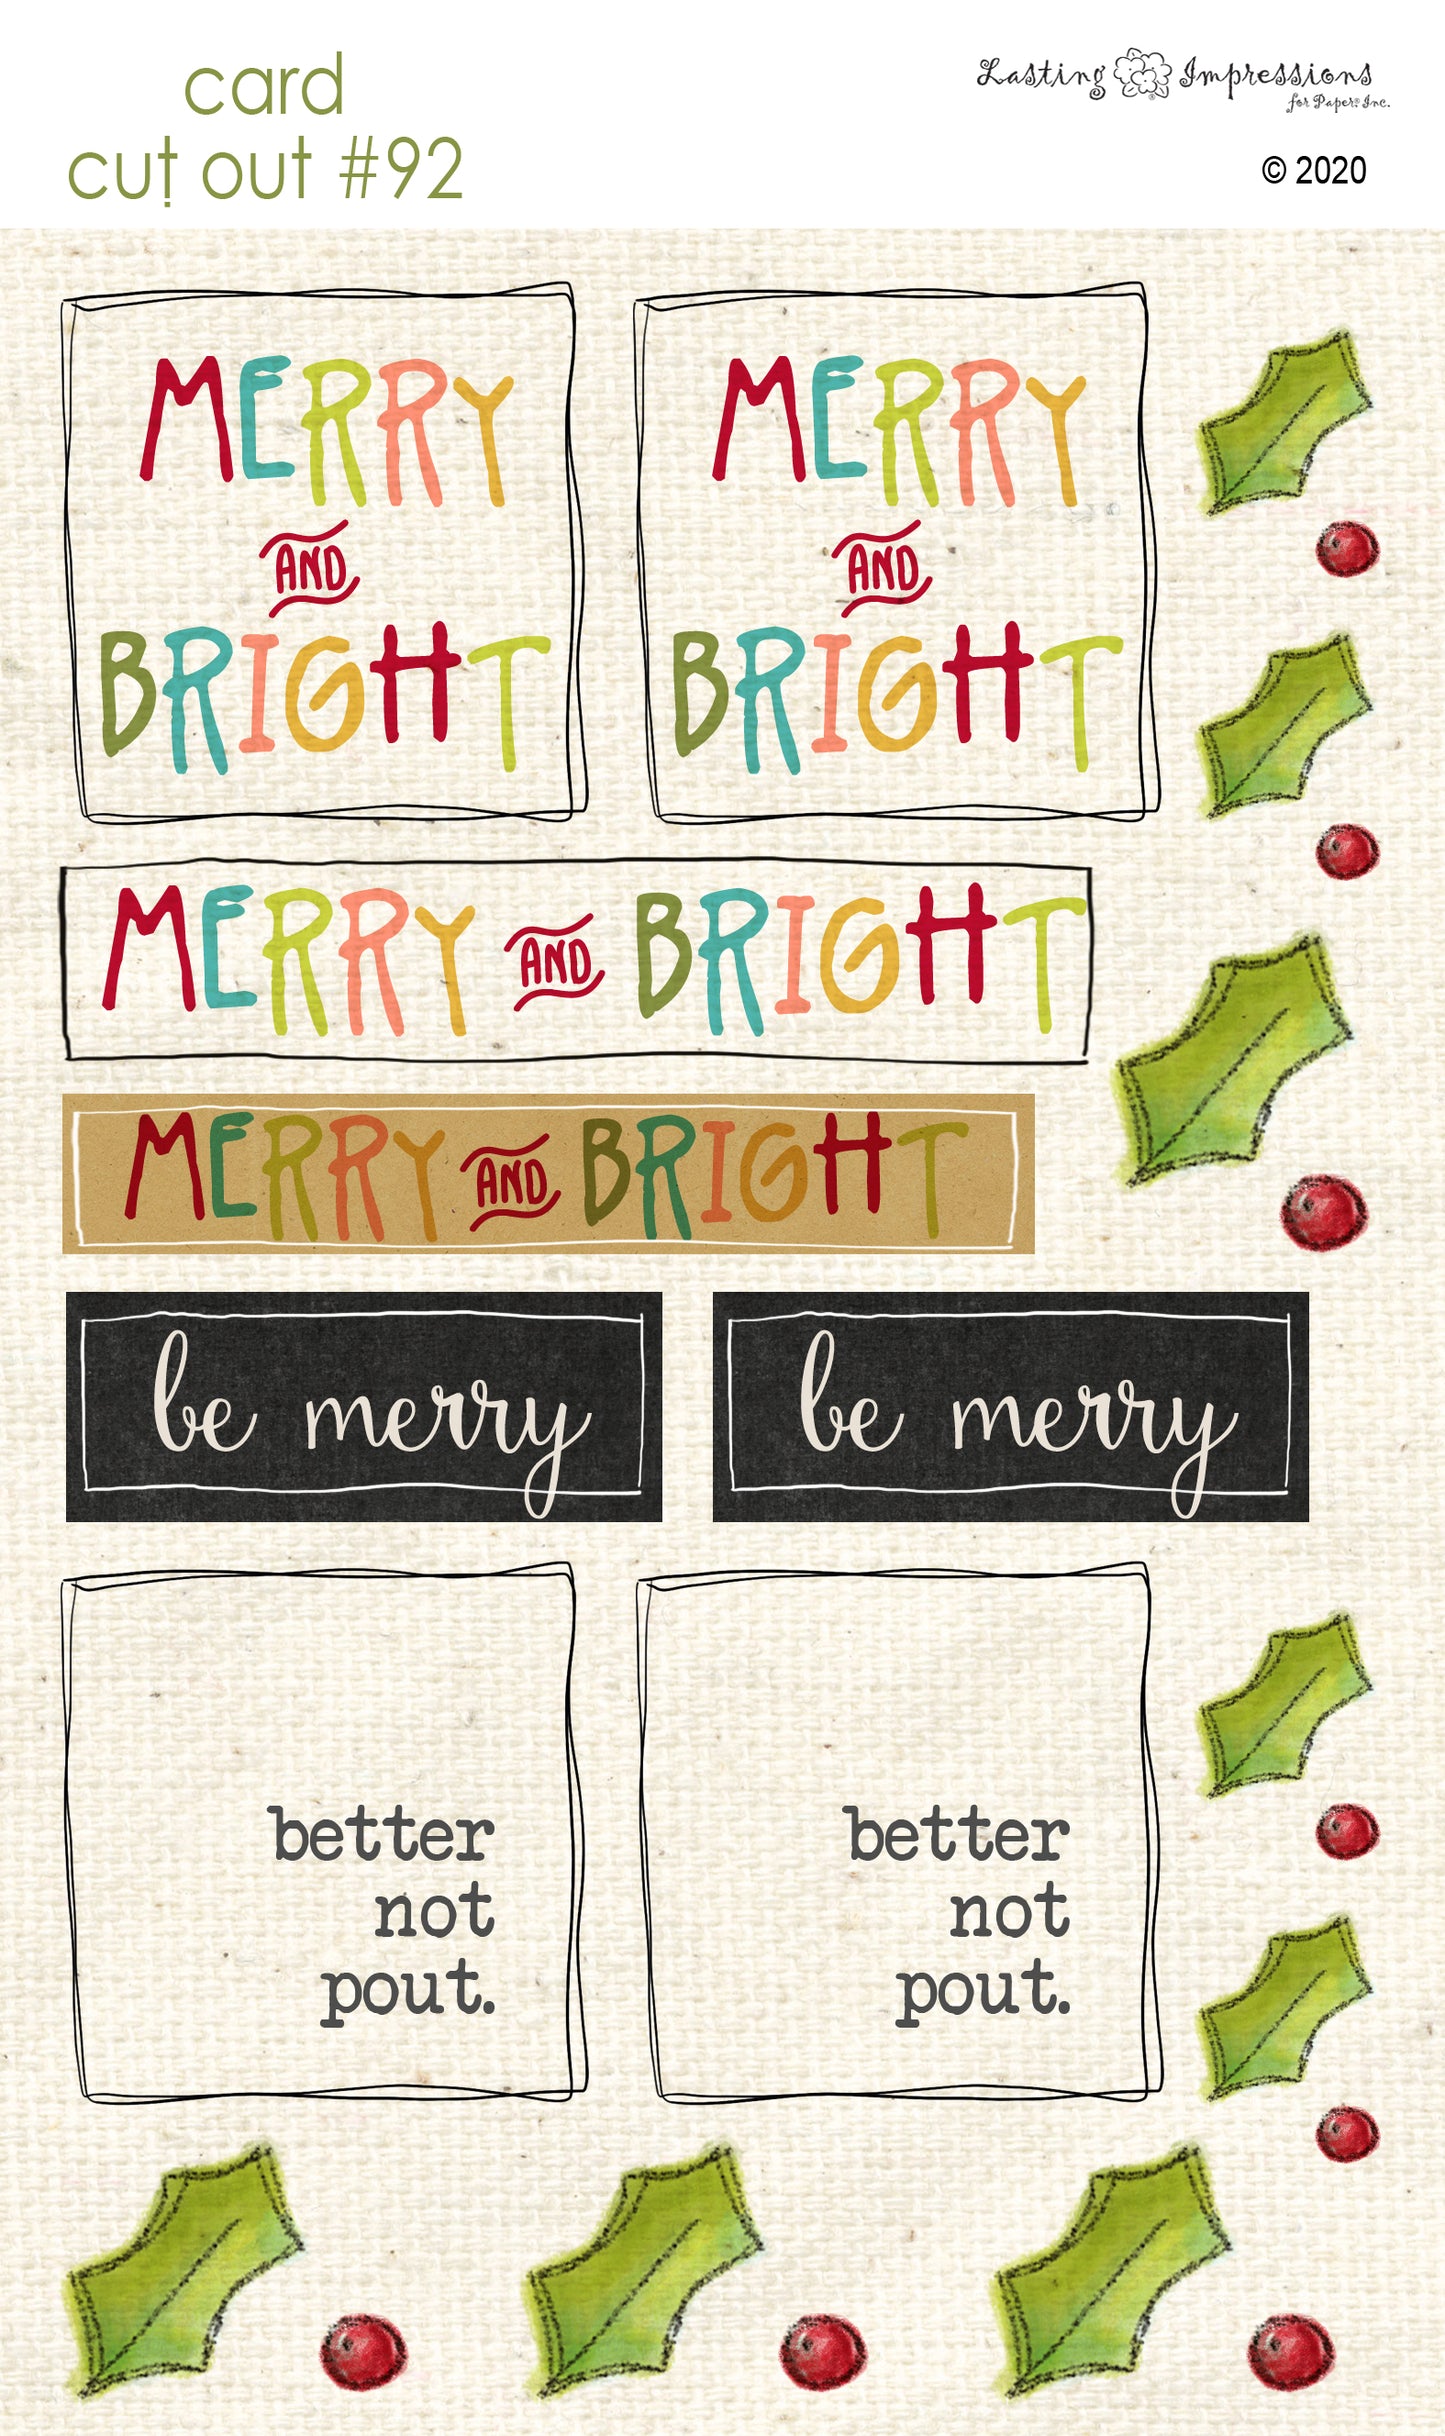 card
cut out #92
Lasting Impressions
for Paper, Inc.
© 2020
MERRY
AND
BRIGHT
MERRY
AND
BRIGHT
MERRY AND BRIGHT
MERRY AND BRIGHT
be merry
be merry
better
not
pout.
better
not
pout.